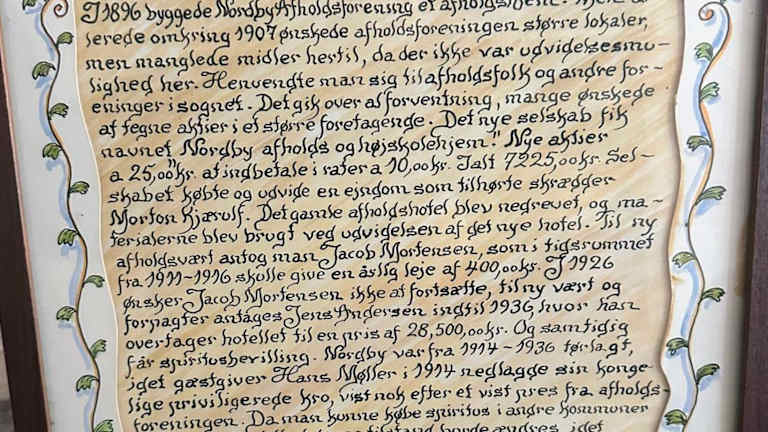 I 1896 byggede Nordby Afholdsforening et afholdshjem. Men al-
lerede omkring 1907 ønskede afholdsforeningen større lokaler,
men manglede midler hertil, da der ikke var udvidelsesmu-
lighed her. Henvendte man sig til afholdsfolk og andre for-
eninger i sognet. Det gik over al forventning, mange ønskede
at tegne aktier i et større foretagende. Det nye selskab fik
navnet „Nordby afholds og højskolehjem." Nye aktier
a 25,00kr. at indbetale i rater a 10,00kr. Ialt 7225,00kr. Sel-
skabet købte og udvide en ejndom som tilhørte skrædder
Morton Kjærulf. Det gamle afholdshotel blev nedrevet, og ma-
terialerne blev brugt ved udvidelsen af det nye hotel. Til ny
afholdsvært antog man Jacob Mortensen, som i tidsrummet
fra 1911-1916 skulle give en åslig leje af 400,00kr. I 1926
ønsker Jacob Mortensen ikke at fortsætte, til ny vært og
forpagter antages Jens Andersen indtil 1936, hvor han
overtager hotellet til en pris af 28,500,00kr. Og samtidig
får spiritusbevilling. Nordby var fra 1914-1936 tørlagt,
idet gæstgiver Hans Møller i 1914 nedlagde sin konge-
lige priviligerede kro, vist nok efter et vist pres fra afholds-
foreningen. Da man kunne købe spiritus i andre kommuner
tilstand burde ændres, idet